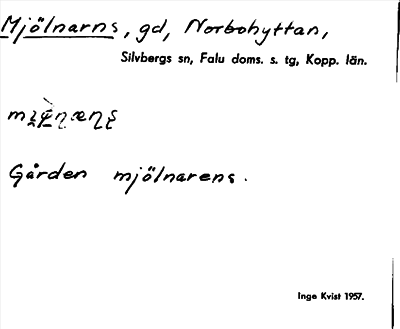 Mjölnarns, gd, Norbohyttan,
Silvbergs sn, Falu doms. s. tg, Kopp. län.
Gården mjölnarens.
Inge Kvist 1957.